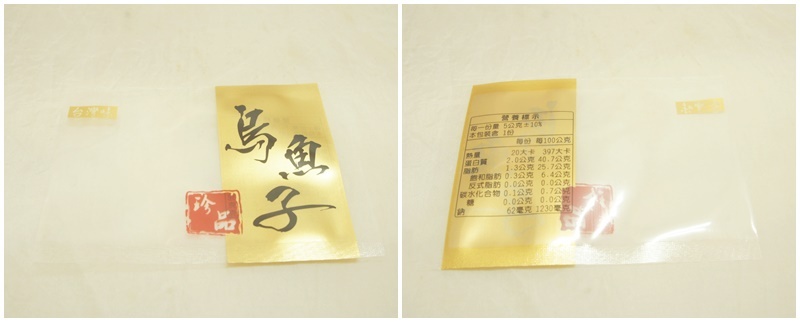 烏
魚
子
珍
品
營養標示
每一份量 5公克±10%
本包裝含 1份
每份 每100公克
熱量 20大卡 397大卡
蛋白質 2.0公克 40.7公克
脂肪 1.3公克 25.7公克
飽和脂肪 0.3公克 6.4公克
反式脂肪 0.0公克 0.0公克
碳水化合物 0.1公克 0.7公克
糖 0.0公克 0.0公克
鈉 62毫克 1230毫克